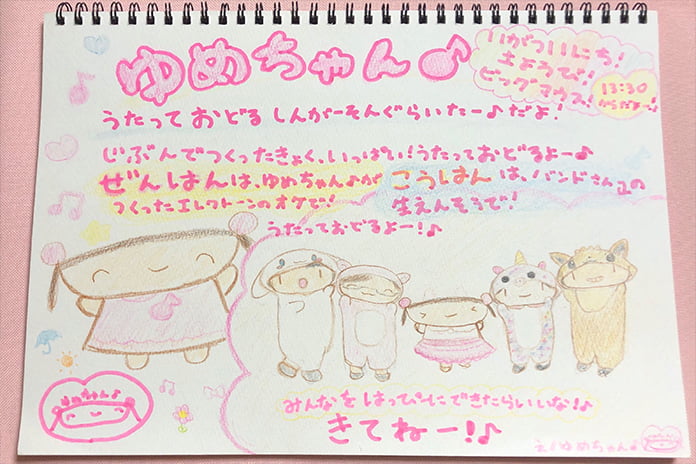 ゆめちゃん♪
1がついにち!
土ようび!
ビッグマウス!
13:30
からだよー!
うたっておどるしんがーそんぐらいたー♪だよ!
じぶんでつくったきょく、いっぱい!うたっておどるよー♪
ぜんはんは、ゆめちゃん♪が
つくったエレクトーンのオケで!
こうはんは、バンドさんの
生えんそうで!
うたっておどるよー!♪
ゆめちゃん♪
みんなをはっぴーにできたらいいな!♪
きてねー!♪
え/ゆめちゃん♪